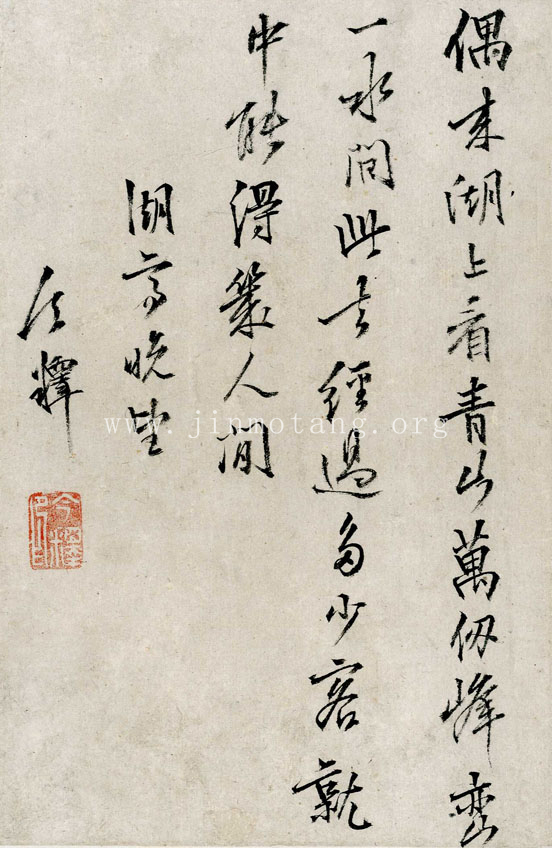 偶来湖上看青山萬仞峰巒
一水間此去經過多少客就
中能得幾人閒
湖亭晚望
www.jinmotang.org